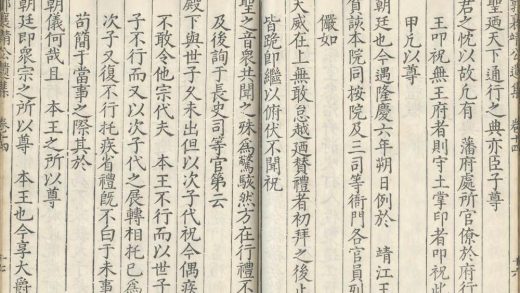 聖廼天下通行之典亦臣子尊
君之忱以故凡有 藩府處所官僚於府行
王叩祝無王府者則守土掌印者叩祝此
以尊
朝廷也今遇隆慶六年朔日例於 靖江王
賀該本院同按院及三司等衙門各官員
儼如
天威在上無敢怠越廼贊禮者初拜之後止
皆跪即繼以俯伏不聞祝
聖之音衆共聞之殊為驚駭然方在行禮不
及後詢于長史司等官第云
殿下與世子久未出但以次子代祝今偶疾
不敢令他宗代夫 本王不行而以世子
子不行而又以次子代之展轉相托已為
次子又復不行托疾省禮旣不曰于未事
苟簡于當事之際其於
朝儀何哉且 本王之所以尊
朝廷即衆宗之所以尊 本王也今享大爵
郭襄靖公遺集 卷十四